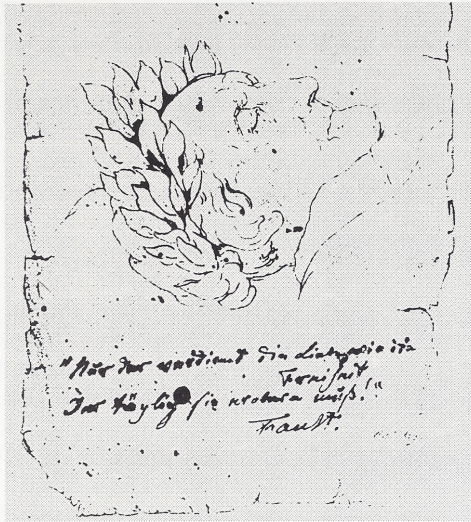 "Nur der verdient die Liebe wie die
Freiheit
Der täglich sie erobern muß!"
Faust.